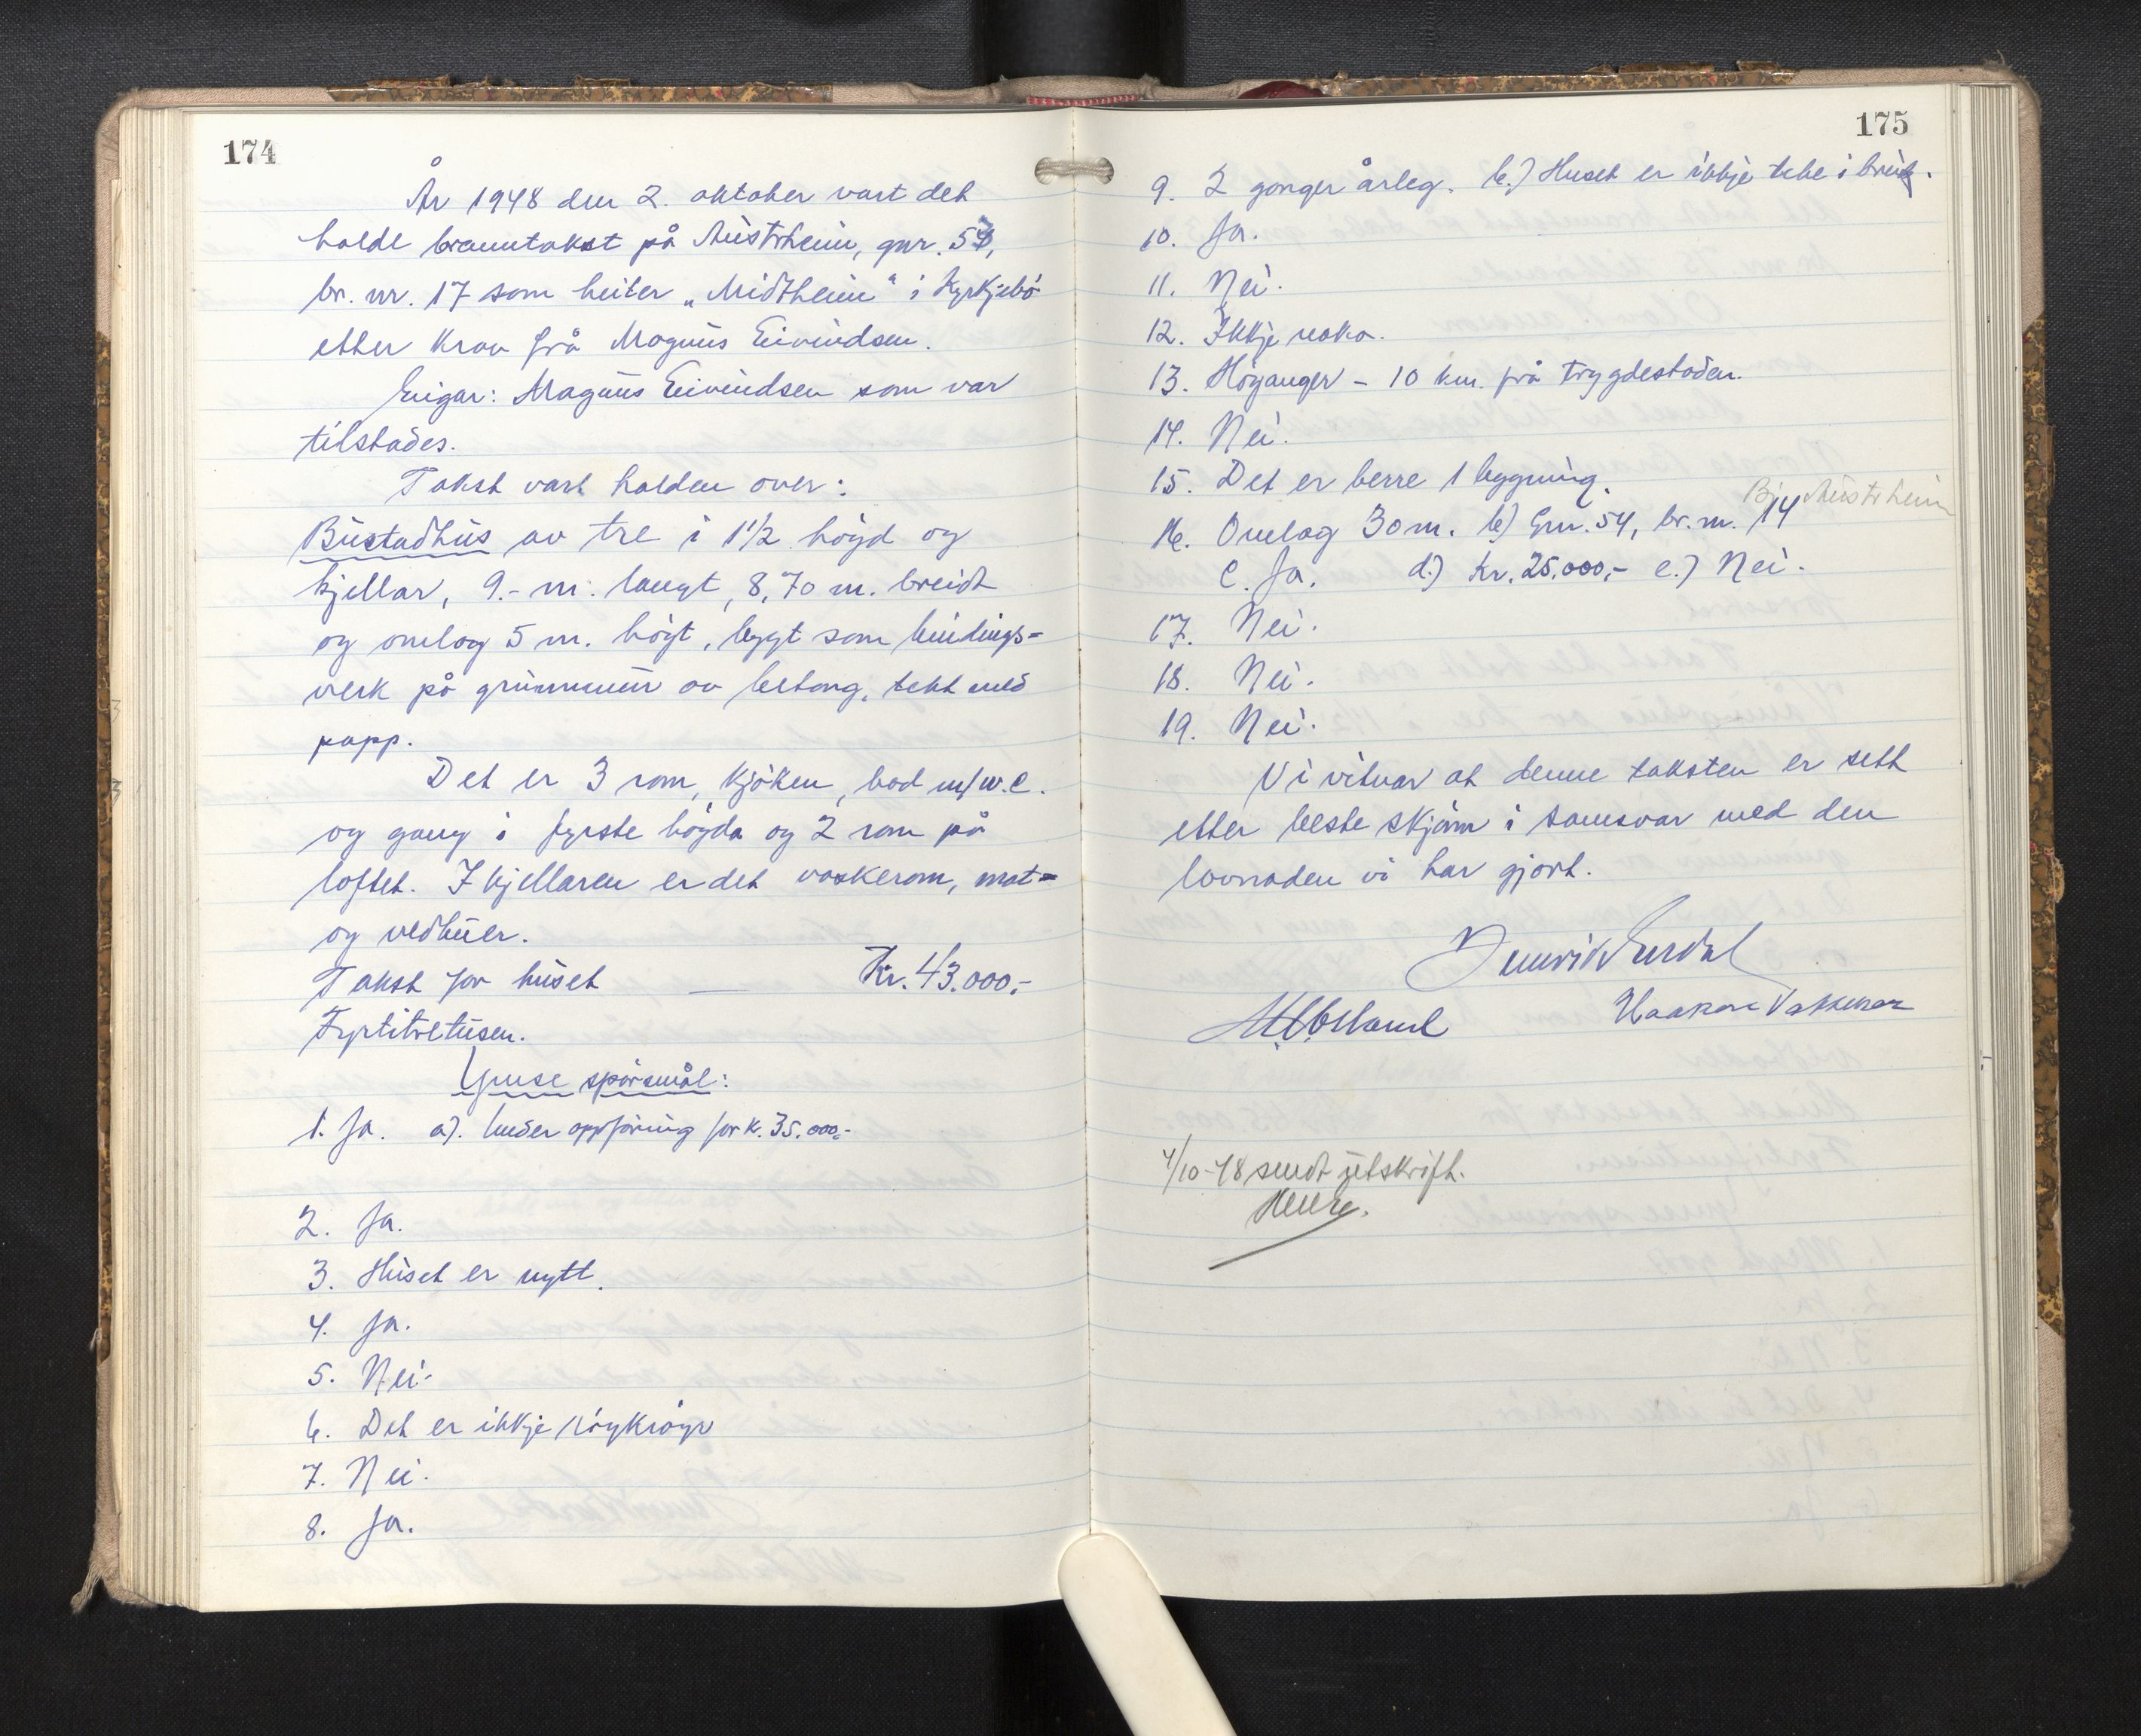 174
År 1948 den 2. oktober vart det
halde branntakst på Austrheim, gnr. 54,
br. nr. 17 som heiter „Midtheim" i Kyrkjebö
etter krav frå Magnus Eivindsen.
Eigar: Magnus Eivindsen som var
tilstades.
Takst vart halden over:
Bustadhus av tre i 1½ högd og
kjellar, 9.- m. langt, 8,70 m. breidt
og omlag 5 m. högt, bygt som bindings-
verk på grunnmur av betong, tekt med
papp.
Det er 3 rom, kjöken, bad m/w.c.
og gang i fyrste högda og 2 rom på
loftet. I kjellaren er det vaskerom, mat-
og vedbuer.
Takst for huset — Kr. 43.000,-
Fyrtitretusen.
Ymse spörsmål:
1. Ja. a). Under oppföring for kr. 35.000,-
2. Ja.
3. Huset er nytt.
4. Ja.
5. Nei.
6. Det er ikkje röykröyr
7. Nei.
8. Ja.
175
9. 2 gonger årleg. b.) Huset er ikkje teke i bruk.
10. Ja.
11. Nei.
12. Ikkje noko.
13. Höyanger - 10 km. frå trygdestaden.
14. Nei.
15. Det er berre 1 bygning.
Austrheim
16. Omlag 30 m. b) Gnr. 54, br. nr. 14
c. Ja. d.) Kr. 25.000,- e.) Nei.
17. Nei.
18. Nei.
19. Nei.
Vi vitnar at denne taksten er sett
etter beste skjöm i samsvar med den
lovnaden vi har gjort.
Haakon
4/10-48 sendt utskrift.